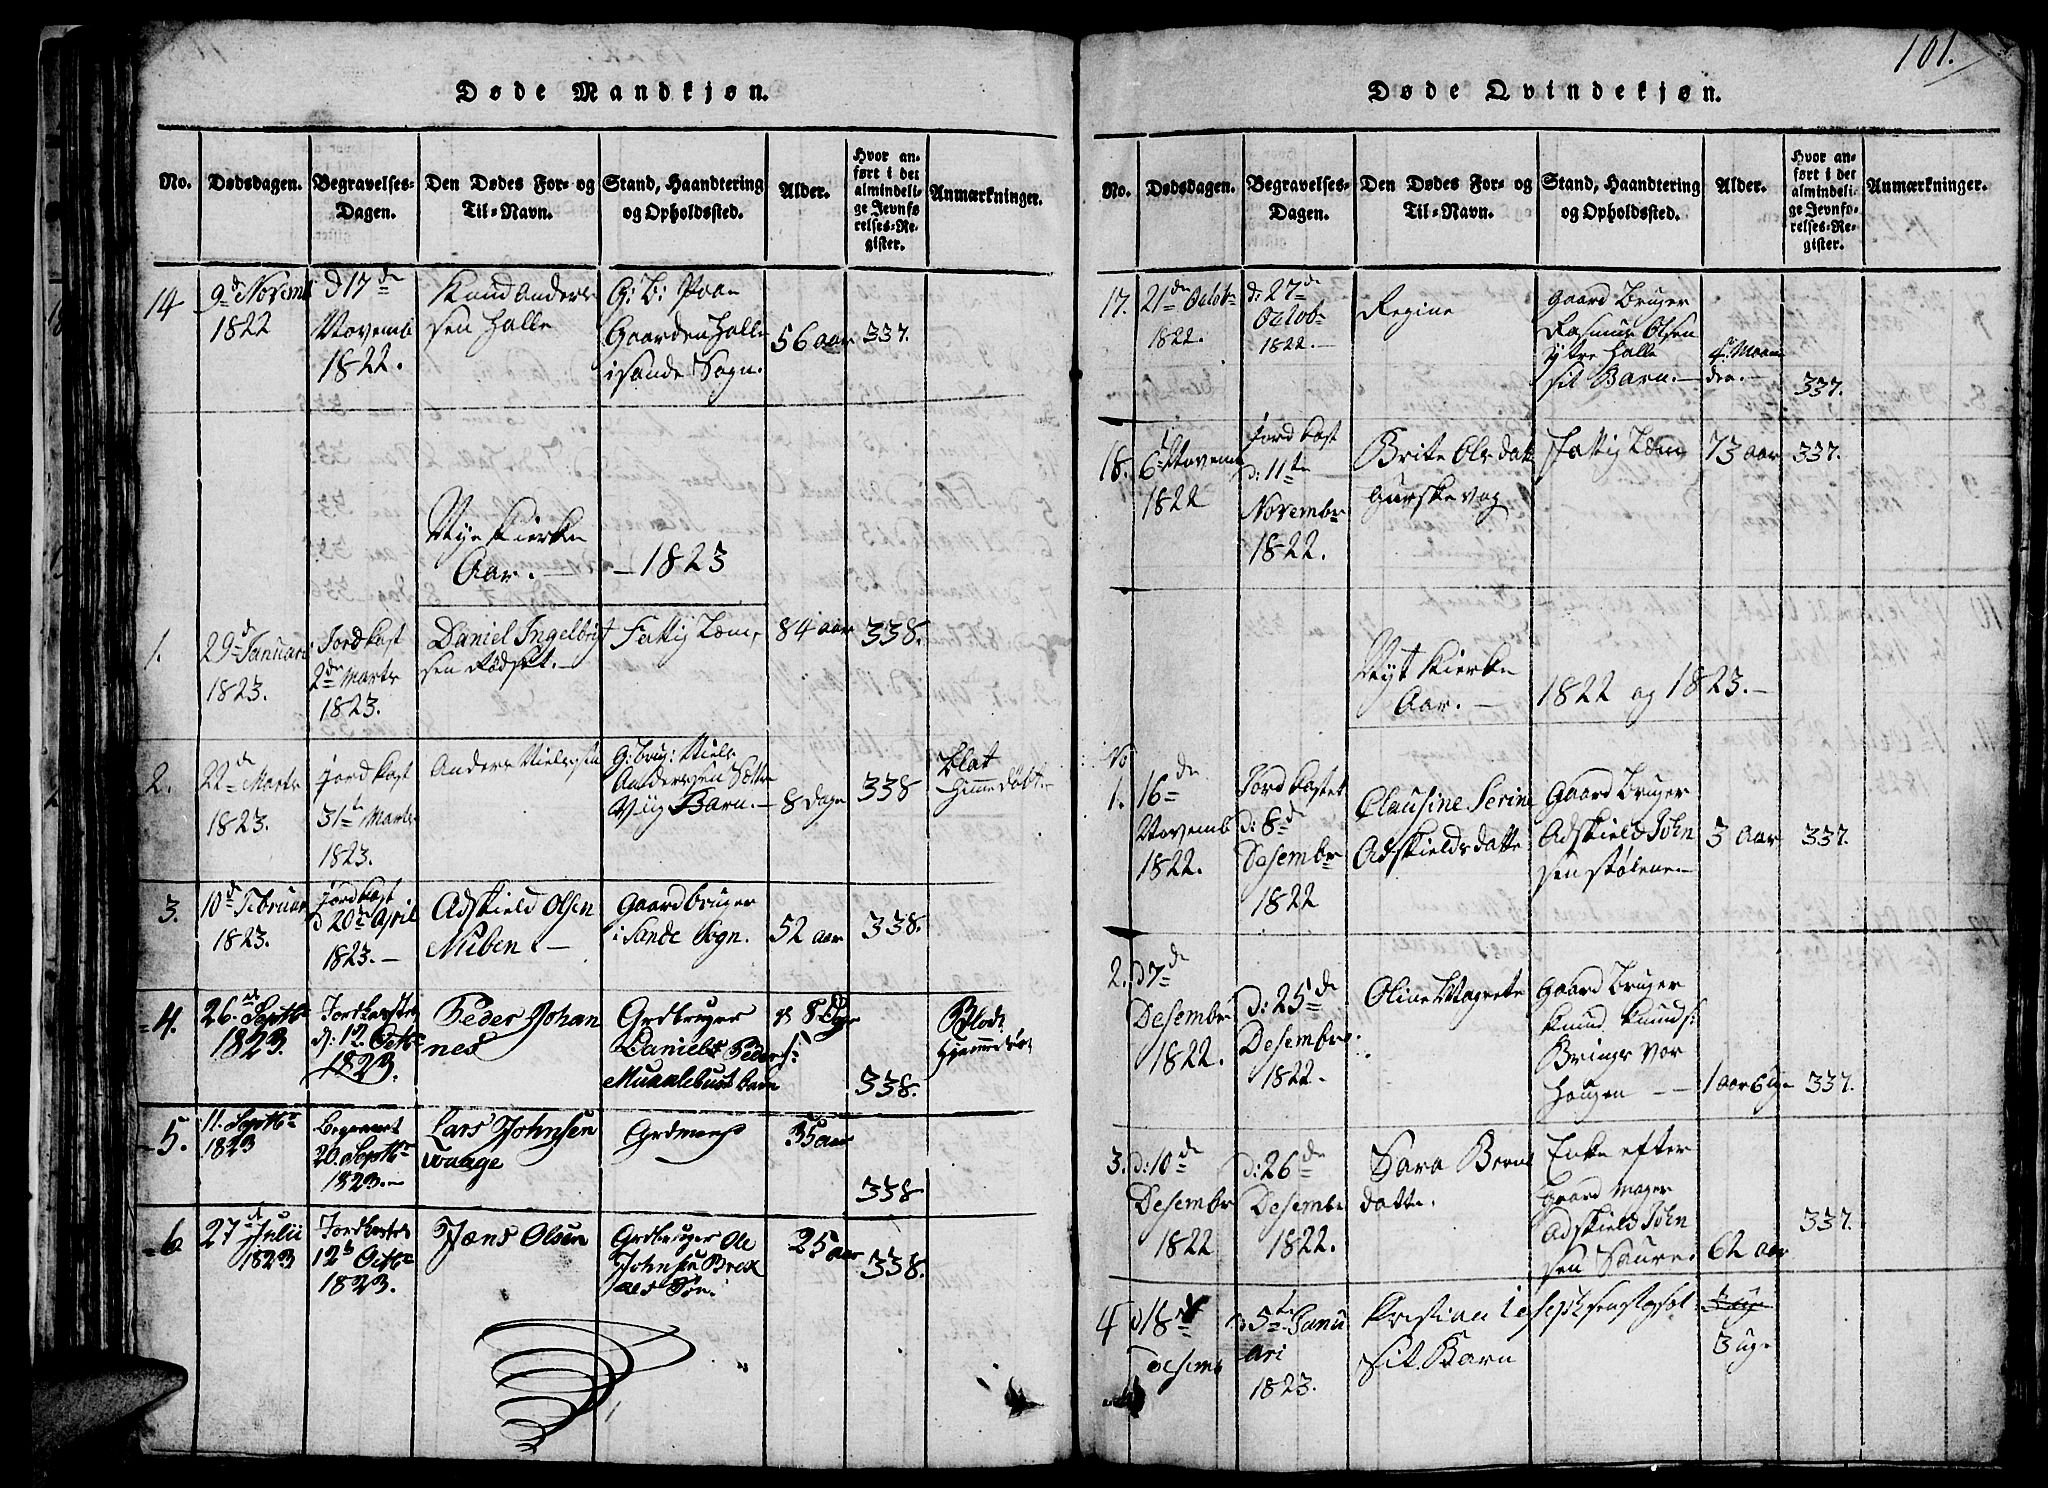 101.
Døde Mandkjøn.
No. Dødsdagen. Begravelses-Dagen. Den Dødes For- og Til-Navn. Stand, Haandtering og Opholdssted. Alder. Hvor anført i det almindelige Jevnførelses-Register. Anmærkninger.
14 9de Novemb 1822
d 17de Novemb 1822.
Knud Andersen Halle
G: B: Paa Gaarden Halle i Sande Sogn.
56 aar
337.
Nye Kierke Aar. — 1823
1. 29de Januari 1823.
Jordkast 2de Marts 1823.
Daniel Ingelbrigtsen Rødset.
Fattig Lem,
84 aar
338.
2. 22de Marts 1823.
Jordkast 31te Marts 1823.
Anders Nielsen
G: brug: Niels Andersen Barn.
8 dage
338
Hiemedøbt
3. 10de Februar 1823.
Jordkast d 20de April 1823.
Adskield Olsen Myben.
Gaardbruger i Sande Sogn.
52 aar
338.
4. 26. Septbr 1823.
Jordkastet d: 12. Octbr 1823.
Peder Johannes
Grdbruger Daniels Peders: Muaalebust barn
8 Dge
338.
Hjemmedøbt
5. 11. Septbr 1823
Begravet 20. Septbr 1823.
Lars Johnsen Waage
Grdmand
35 aar
338.
6 27de Julii 1823
Jordkastet 12te Octbr 1823.
Jens Olsen
Grdbruger Ole Johnsen Søn.
25 aar
338.
Døde Qvindekjøn.
No. Dødsdagen. Begravelses-Dagen. Den Dødes For- og Til-Navn. Stand, Haandtering og Opholdssted. Alder. Hvor anført i det almindelige Jevnførelses-Register. Anmærkninger.
17. 21de Octob 1822.
d: 27de Octob 1822.
Regine
Gaard Bruger Rasmus Olsen Ytre Halle sit Barn.
4 Maander.
337.
18. 6te Novemb 1822
Jordkast d: 11te Novembr 1822.
Brite Olsdatt Gurskevog
Fattig Lem
73 aar
337.
Nyt Kierke Aar. — 1822 og 1823.
No
1. 16de Novemb 1822.
Jordkastet d: 8de Desembr 1822
Clausine Serine Adskieldsdatte
Gaard Bruger Adskield Johnsen Stølene
3 aar
337.
2. d 7de Desembr 1822.
d: 25de Desembr 1822.
Oline Magrete
Gaard Bruger Knud Knuds: Bringsvor Hougen
1 aar 6 uge
337.
3. d: 10de Desembr 1822
d: 26de Desembe 1822.
Sara Berntdatte.
Enke efter Gaard mager Adskield Johnsen Saure.
62 aar
337.
4 d 18de Desemb
d 5te Januari 1823.
Kristian sit Barn
3 uge